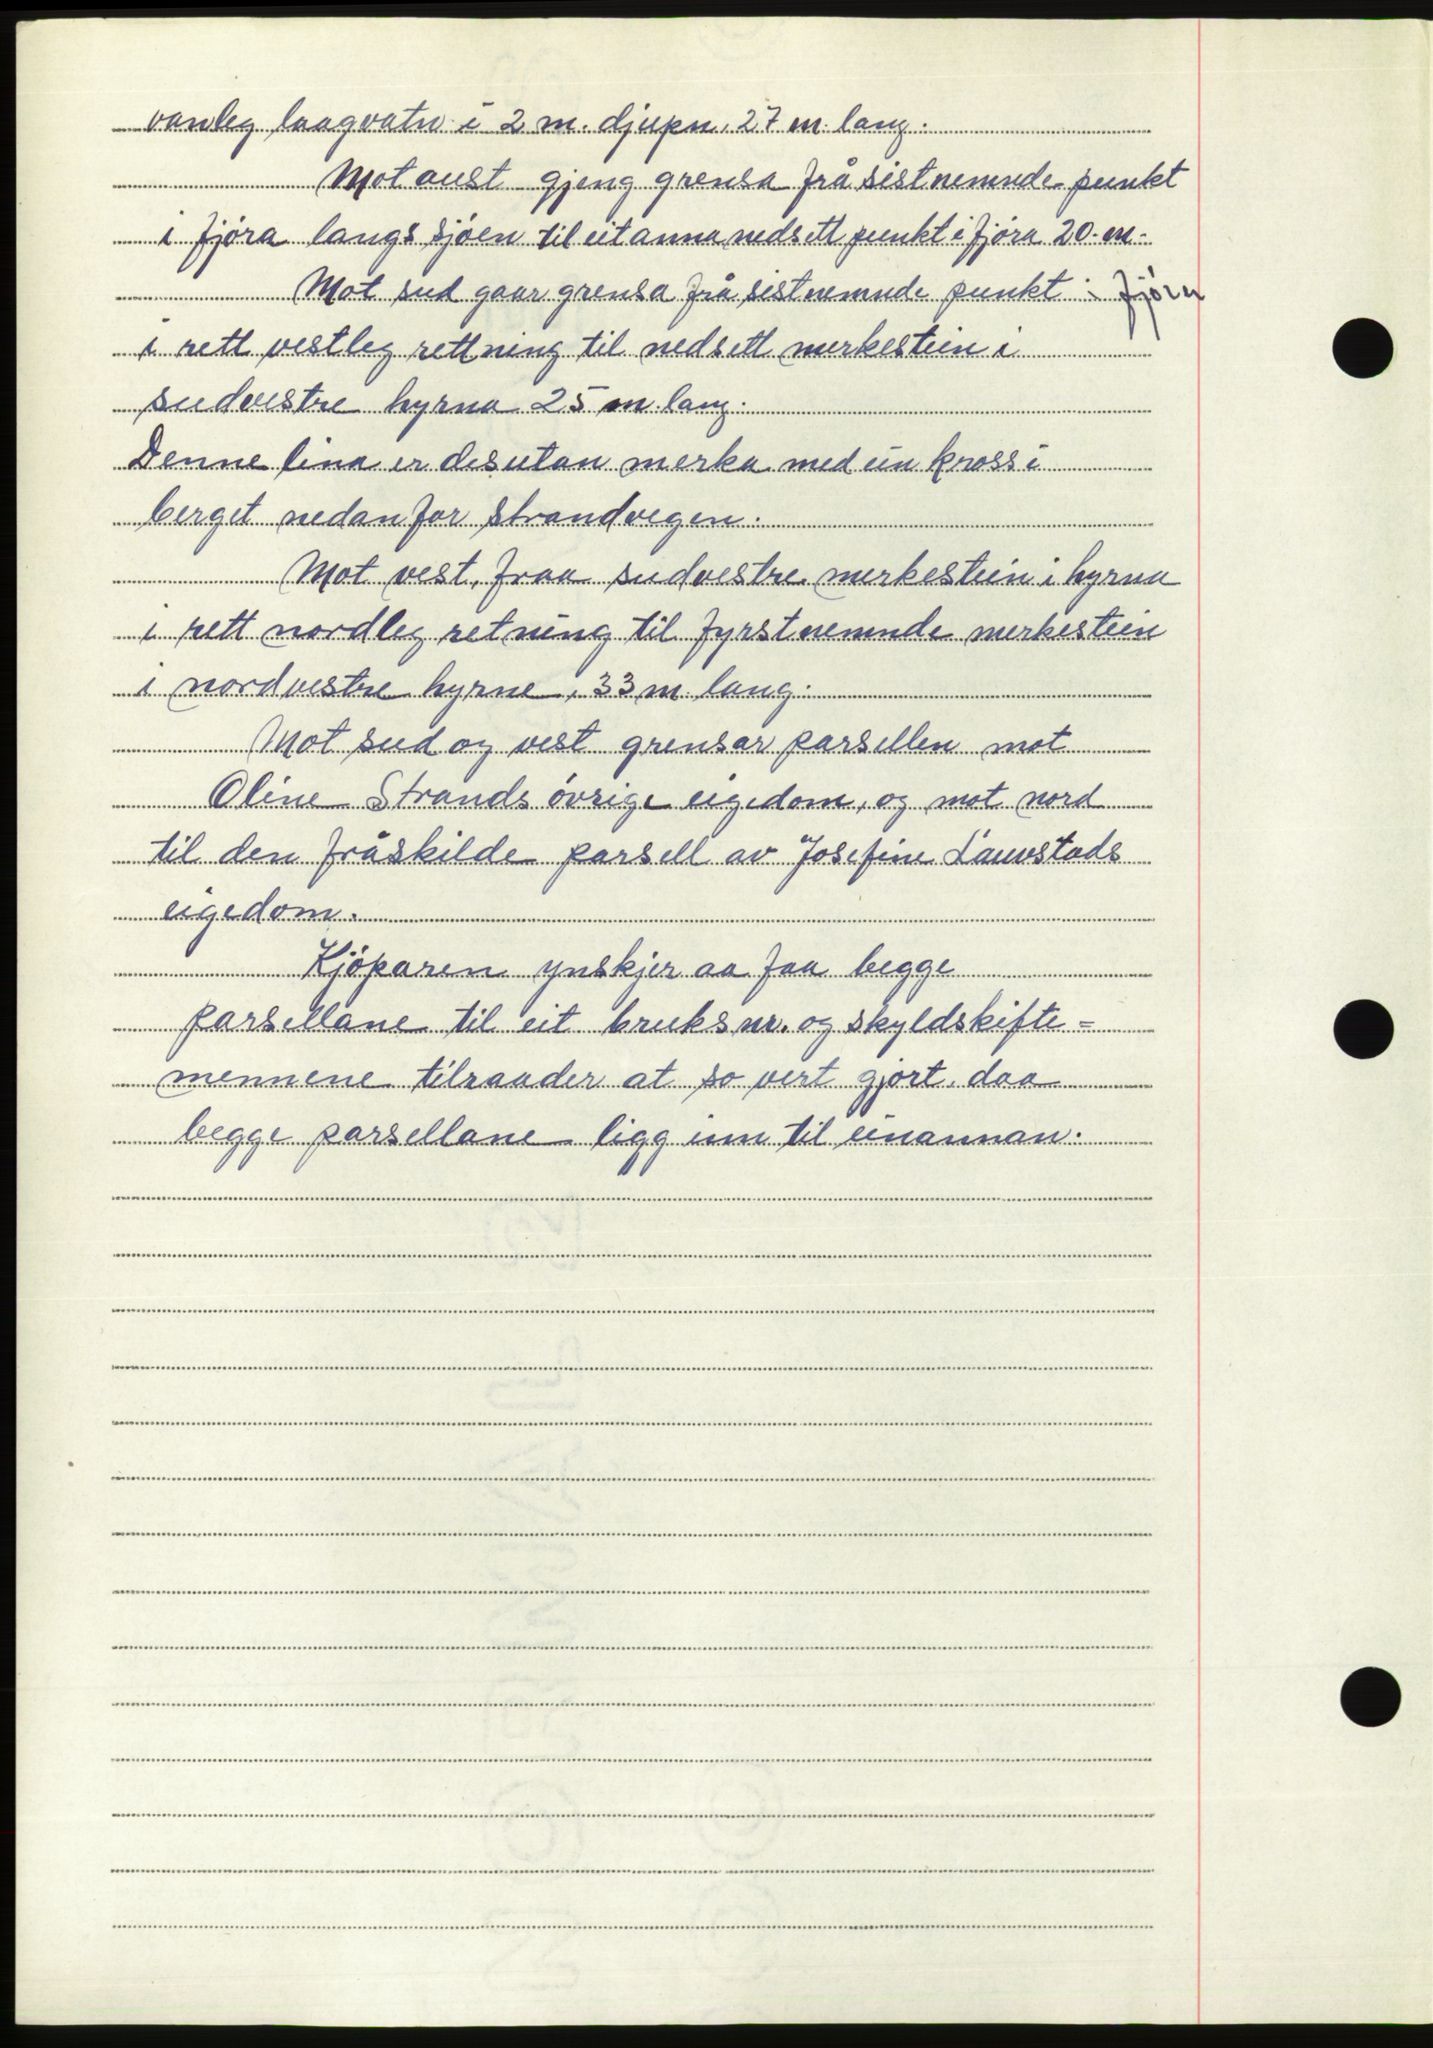 vanleg laagvatn i 2 m. djupn, 27 m. lang.
Mot aust gjeng grensa frå sistnemnde punkt
i fjöra langs sjöen til eit anna nedsett punkt i fjöra 20. m.
Mot sud gaar grensa frå sistnemnde punkt i fjöra
i rett vestleg rettning til nedsett merkestein i
sudvestre hyrna 25 m. lang.
Denne lina er desutan merka med ein kross i
berget nedanfor strandvegen.
Mot vest, fraa sudvestre merkestein i hyrna
i rett nordleg retning til fyrstnemnde merkestein
i nordvestre hyrne, 33 m. lang.
Mot sud og vest grensar parsellen mot
Oline Strands övrige eigedom, og mot nord
til den fråskilde parsell av Josefine Lauvstads
eigedom.
Kjöparen ynskjer aa faa begge
parsellane til eit bruksnr. og skyldskifte=
mennene tilraader at so vert gjort, daa
begge parsellane ligg inn til einannan.